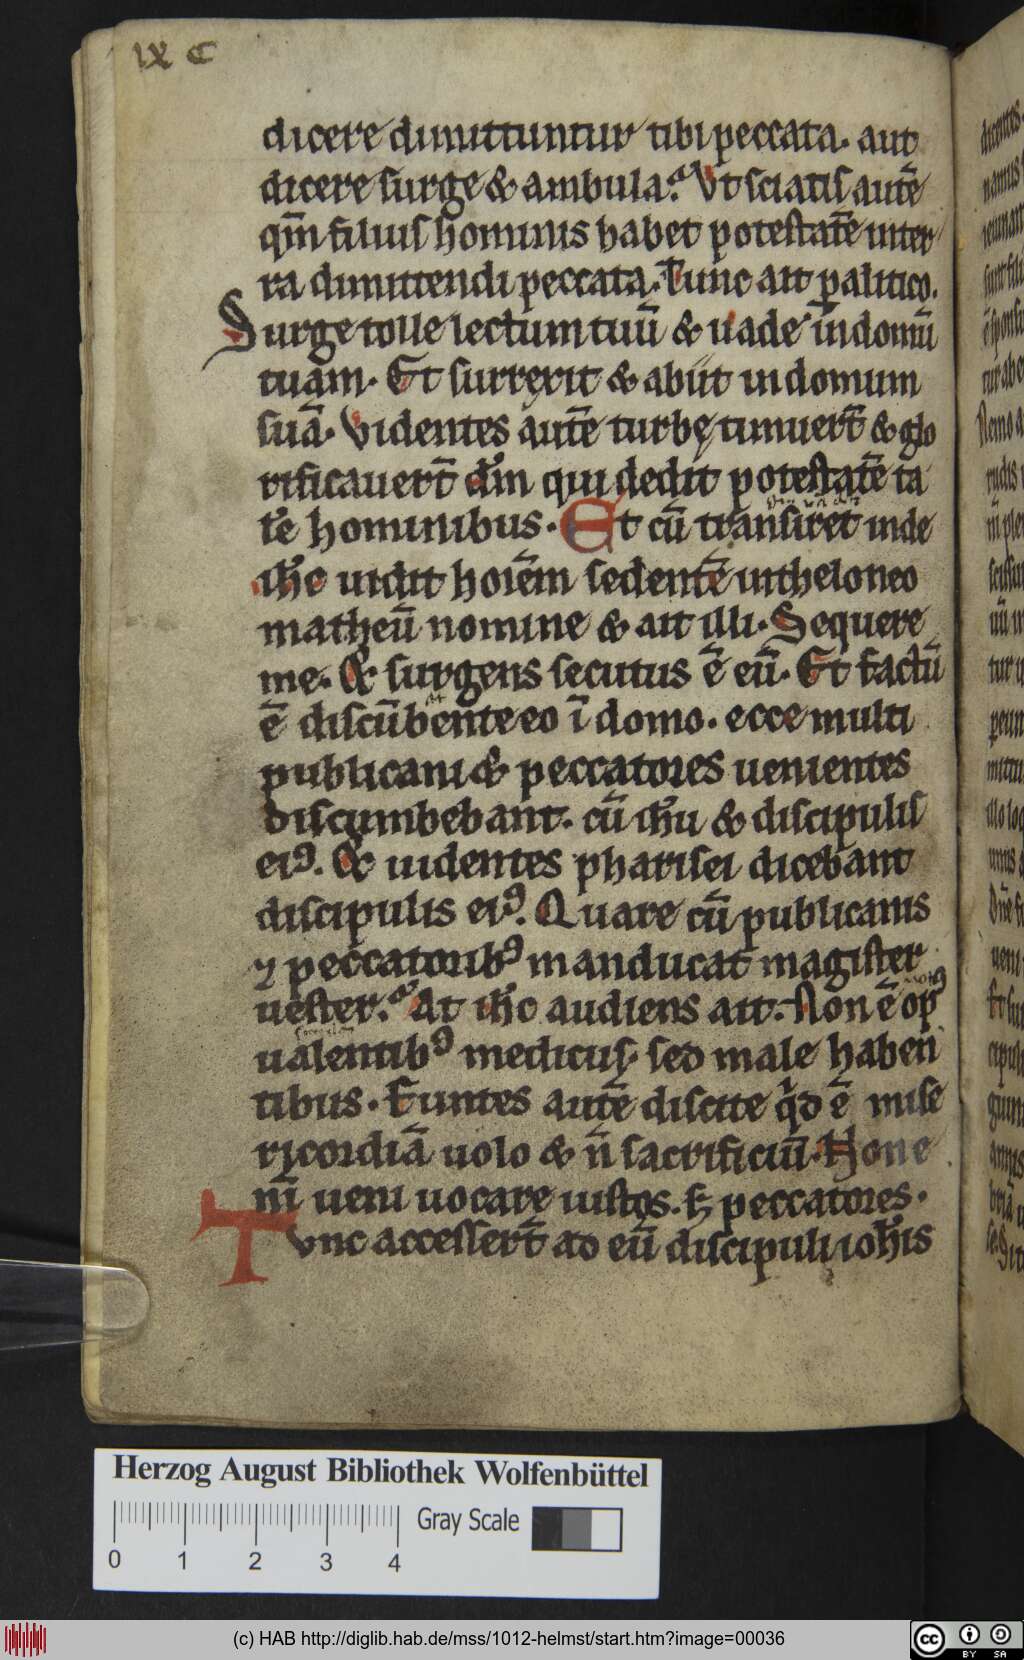 ıx c
dicere dimittuntur tibi peccata. aut
dicere surge & ambula? Vt sciatis autē
qm̄ filius hominis habet potestatē inter
ra dimittendi peccata. Tunc ait palitico.
Surge tolle lectum tuū & uade in domū
tuam. Et surrexit & abiit in domum
suā. Videntes autē turbę timuerт̄ & glo
rificauert̄ dm̄ qui dedit potestatē ta
lē hominibus. Et cū transiret inde
ihc uidit hoīem sedentē in theloneo
matheū nomine & ait illi. Sequere
me. & surgens secutus ē eū. Et factū
ē discūbente eo ī domo. ecce multi
publicani & peccatores uenientes
discumbebant. cū ihu & discipulis
eiꝰ. & uidentes pharisei dicebant
discipulis eiꝰ. Quare cū publicanis
⁊ peccatoribꝰ manducat magister
uester? At ihc audiens ait. Non ē opꝰ
ualentibꝰ medicus. sed male haben
tibus. Euntes autē discite qd ē mise
ricordiā uolo & n̄ sacrificiū. Non e
nī ueni uocare iustos. s; peccatores.
Tunc accessert̄ ad eū discipuli iohis
Herzog August Bibliothek Wolfenbüttel
Gray Scale
0 1 2 3 4
(c) HAB http://diglib.hab.de/mss/1012-helmst/start.htm?image=00036
cc BY SA